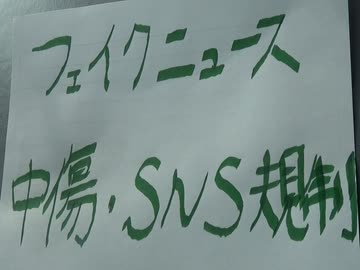 フェイクニュース
中傷・SNS規制